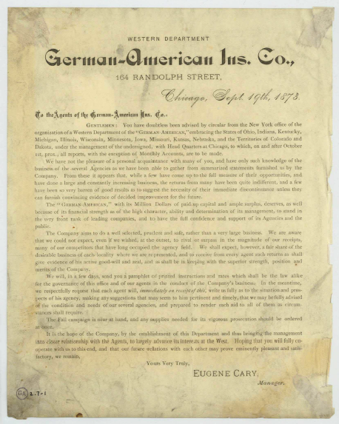 WESTERN DEPARTMENT
German-American Ins. Co.,
164 RANDOLPH STREET,
Chicago, Sept. 19th, 1873.
To the Agents of the German-American Ins. Co.—
GENTLEMEN: You have doubtless been advised by circular from the New York office of the
organization of a Western Department of the "GERMAN-AMERICAN," embracing the States of Ohio, Indiana, Kentucky,
Michigan, Illinois, Wisconsin, Minnesota, Iowa, Missouri, Kansas, Nebraska, and the Territories of Colorado and
Dakota, under the management of the undersigned, with Head Quarters at Chicago, to which, on and after October
1st, prox., all reports, with the exception of Monthly Accounts, are to be made.
We have not the pleasure of a personal acquaintance with many of you, and have only such knowledge of the
business of the several Agencies as we have been able to gather from statements furnished to us by the
Company. From these it appears that, while a few have come up to the full measure of their opportunities, and
have done a large and constantly increasing business, the returns from many have been quite indifferent, and a few
have been so very barren of good results as to suggest the necessity of their immediate discontinuance unless they
can furnish convincing evidence of decided improvement for the future.
The "GERMAN-AMERICAN," with its Million Dollars of paid up capital and ample surplus, deserves, as well
because of its financial strength as of the high character, ability and determination of its management, to stand in
the very front rank of leading companies, and to have the full confidence and support of its Agencies and the
public.
The Company aims to do a well selected, prudent and safe, rather than a very large business. We are aware
that we could not expect, even if we wished, at the outset, to rival or surpass in the magnitude of our receipts,
many of our competitors that have long occupied the agency field. We shall expect, however, a fair share of the
desirable business of each locality where we are represented, and to receive from our agents such returns as shall
give evidence of
We will, in a few days, send you a pamphlet of printed instructions and rates which shall be the law alike
for the government of this office and of our agents in the conduct of the Company's business. In the meantime,
we respectfully request that each agent will, immediately on receipt of this, write us fully as to the situation and
The Fall campaign is now at hand, and any supplies needed for its vigorous prosecution should be ordered
at once.
It is the hope of the Company, by the establishment of this Department and thus bringing the management
into closer relationship with the Agents, to largely advance its interests at the West. Hoping that you will fully
with us to this end, and that our future relations with each other may prove eminently pleasant and
we remain,
Yours Very Truly,
EUGENE CARY,
Manager.